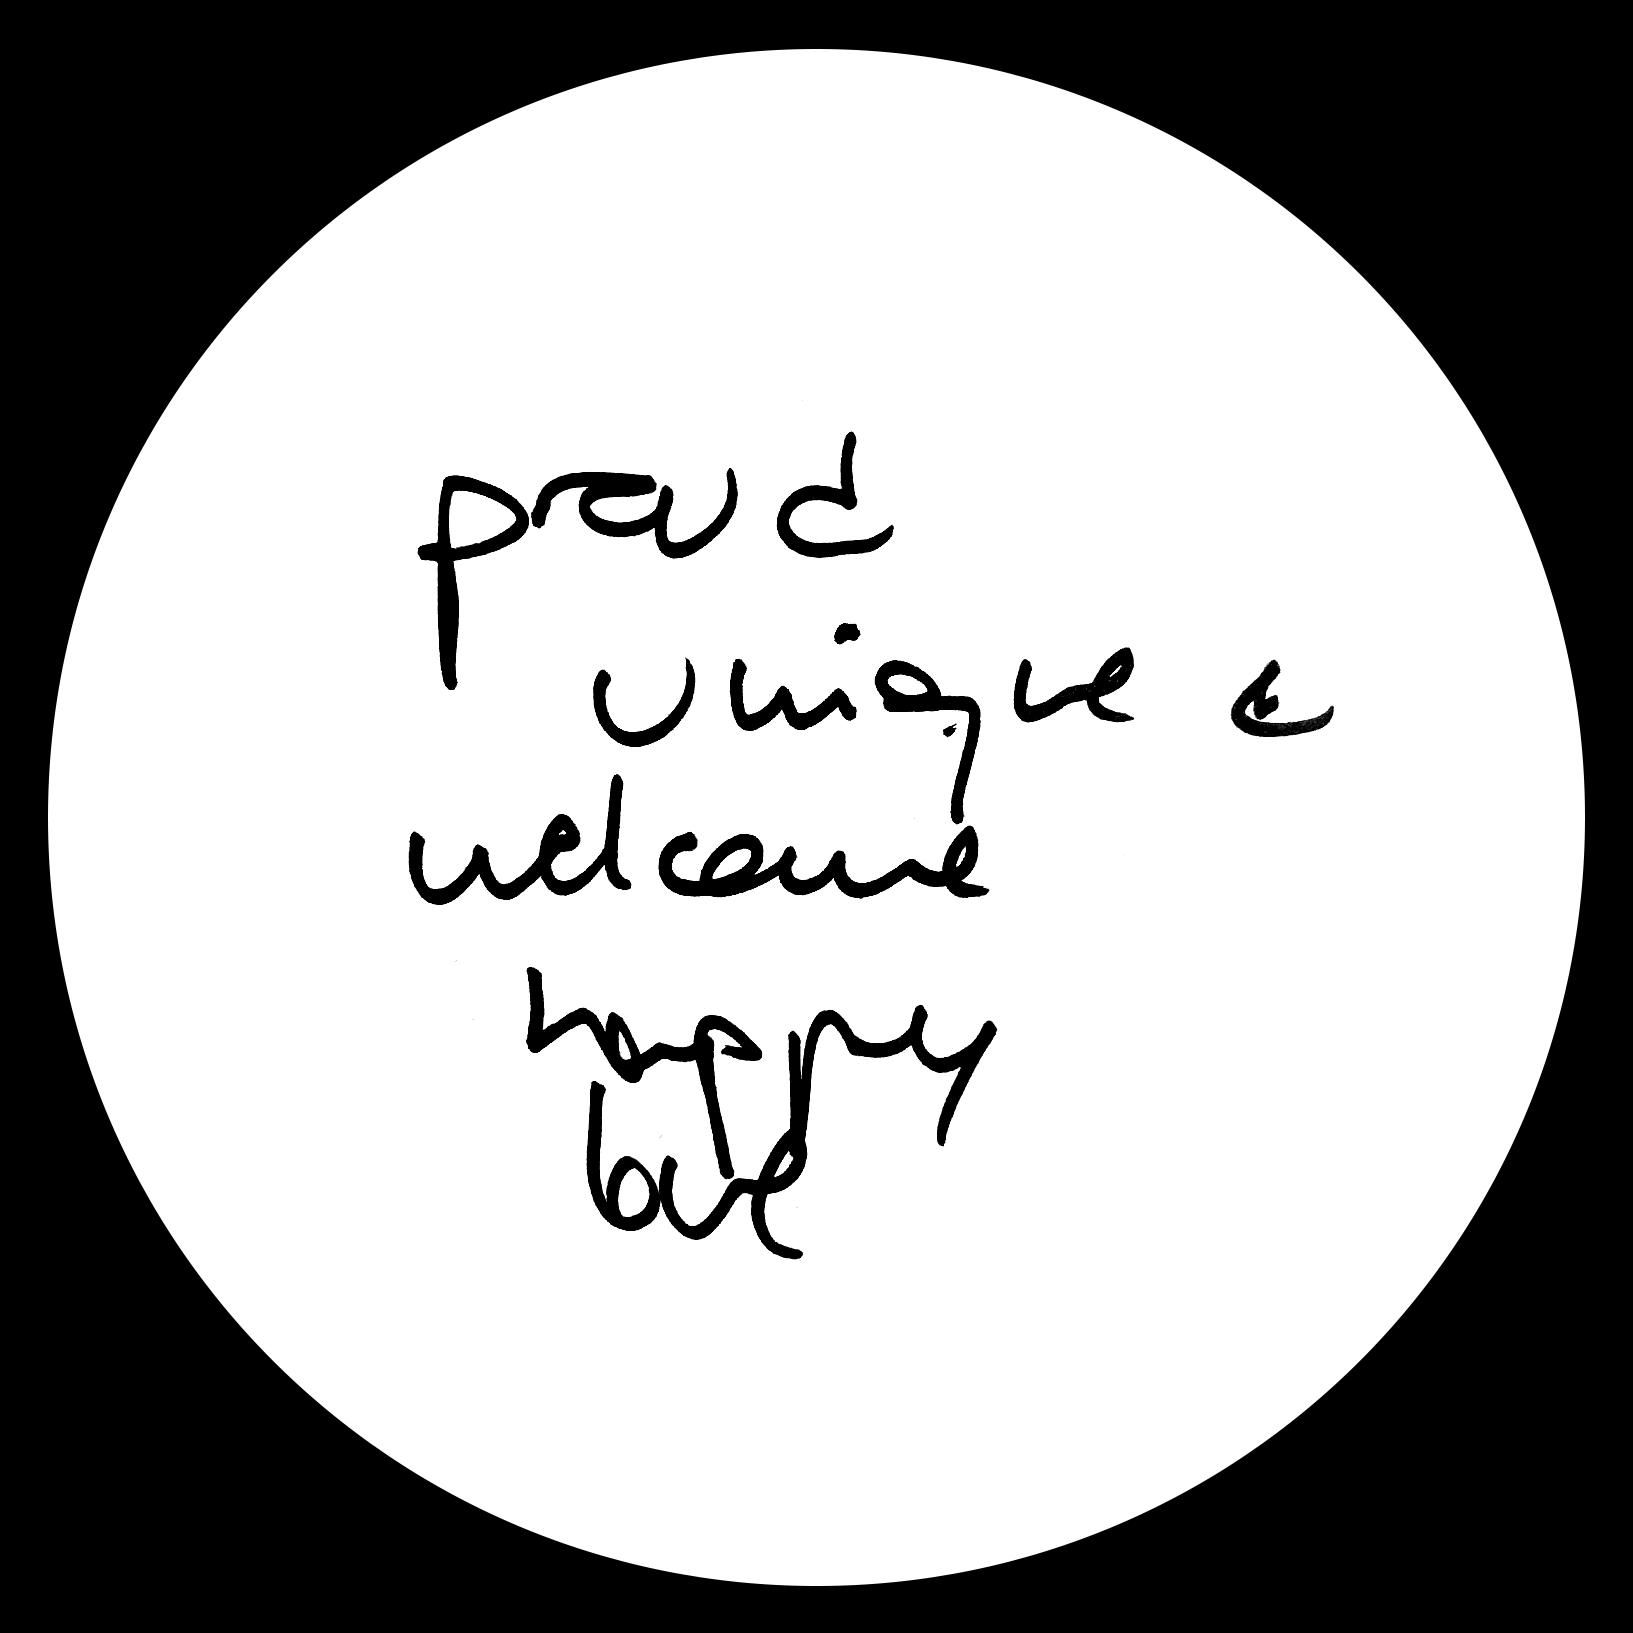 proud
unique
welcome
happy
love